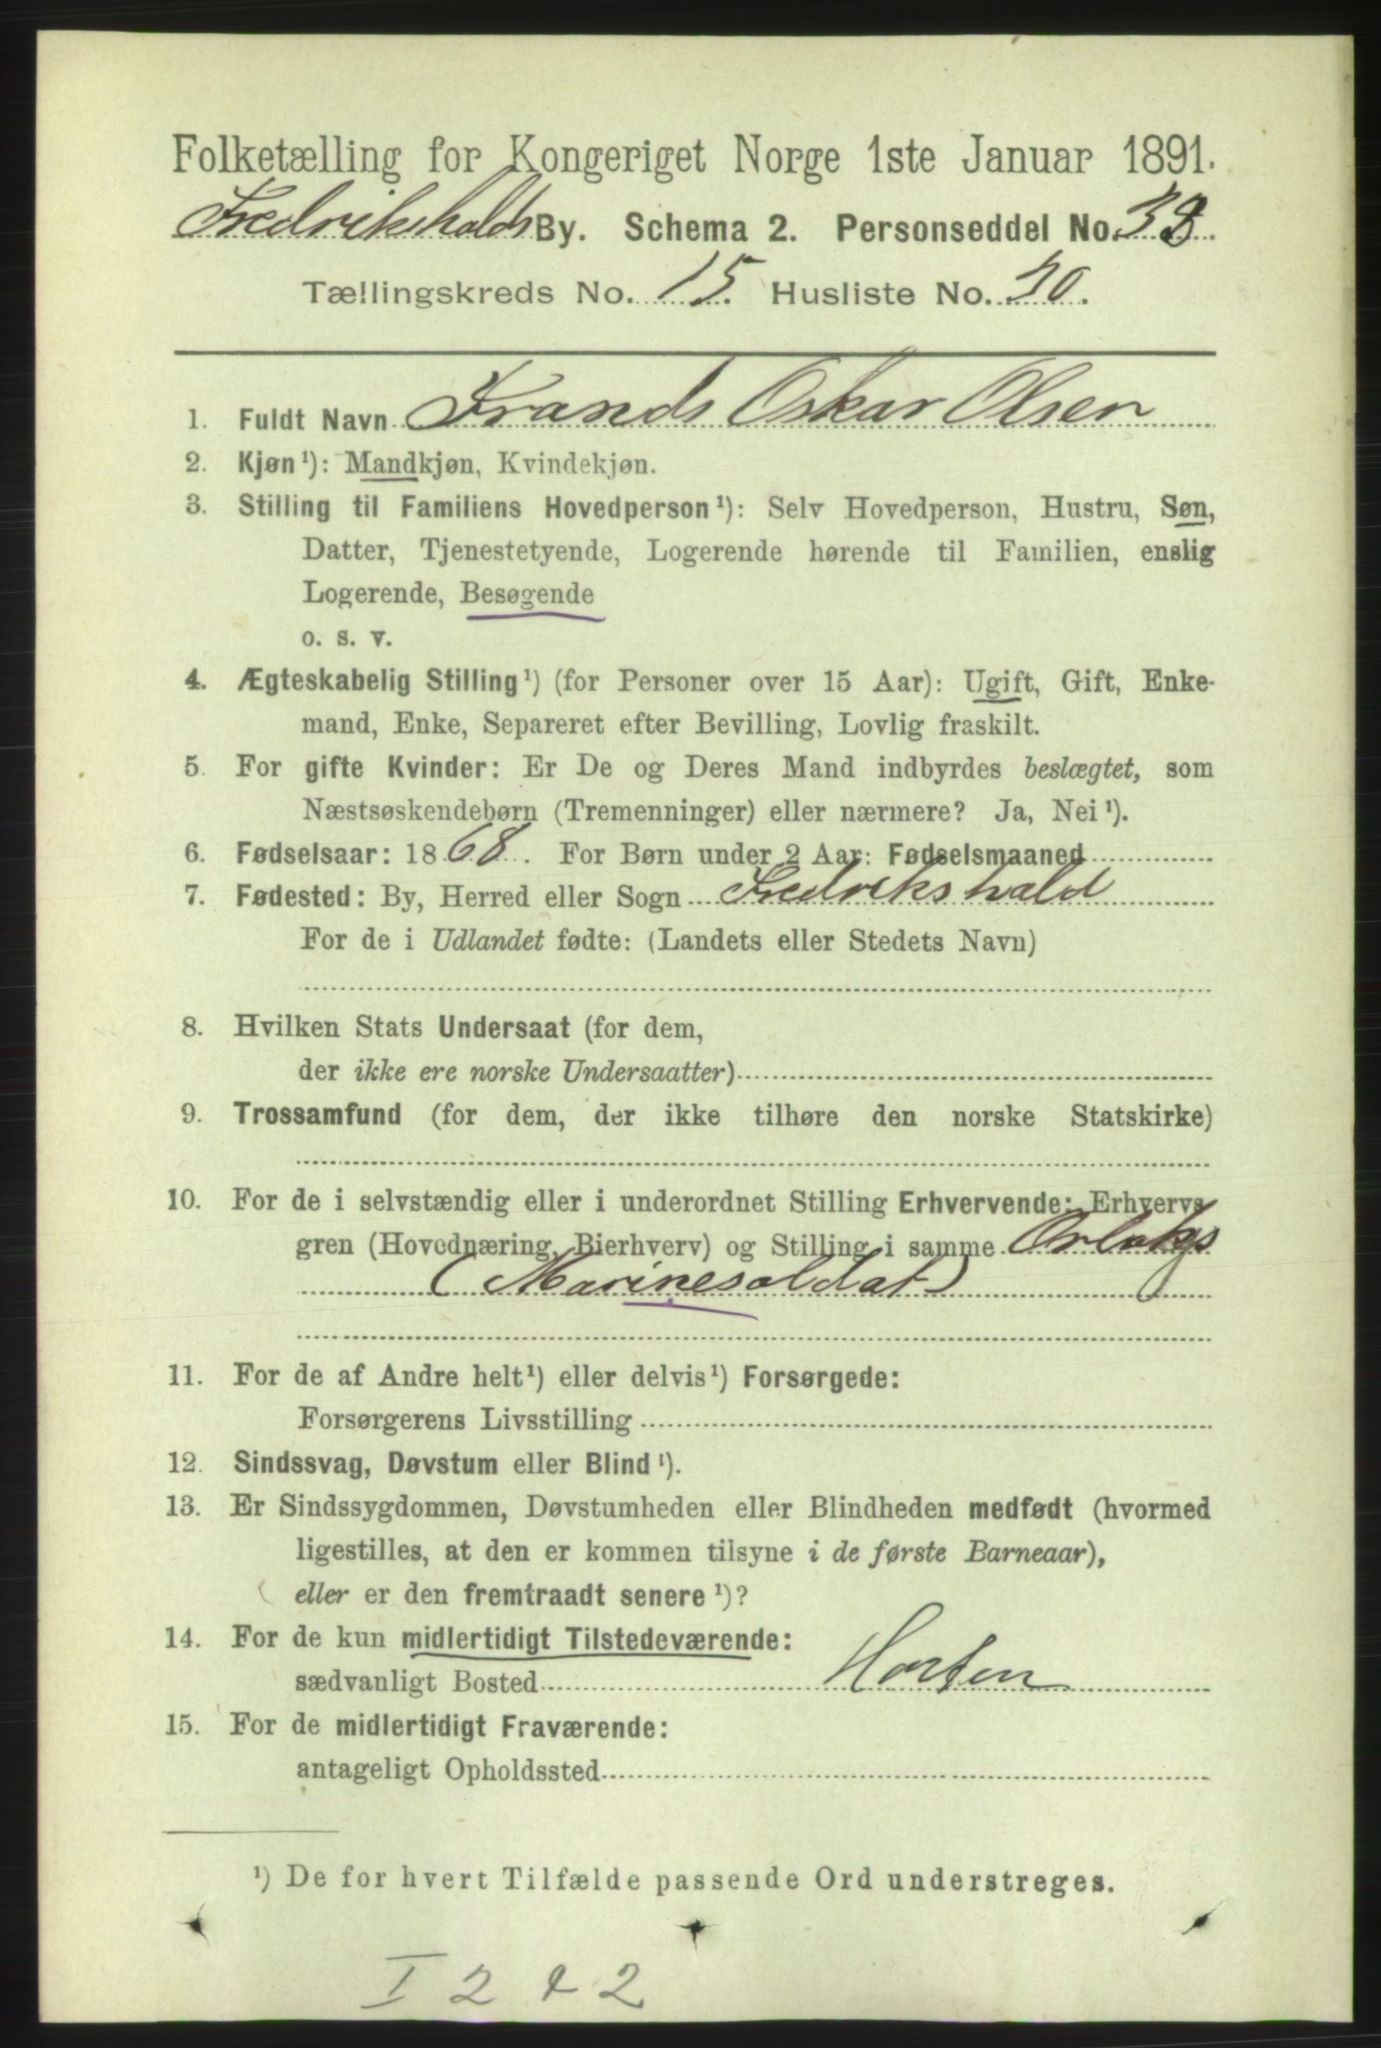 Folketælling for Kongeriget Norge 1ste Januar 1891.
Fredrikshalds By. Schema 2. Personseddel No. 33
Tællingskreds No. 15. Husliste No. 30.
1. Fuldt Navn Frands Oskar Olsen
2. Kjøn¹): Mandkjøn, Kvindekjøn.
3. Stilling til Familiens Hovedperson¹): Selv Hovedperson, Hustru, Søn,
Datter, Tjenestetyende, Logerende hørende til Familien, enslig
Logerende, Besøgende
o. s. v.
4. Ægteskabelig Stilling¹) (for Personer over 15 Aar): Ugift, Gift, Enke-
mand, Enke, Separeret efter Bevilling, Lovlig fraskilt.
5. For gifte Kvinder: Er De og Deres Mand indbyrdes beslægtet, som
Næstsøskendebørn (Tremenninger) eller nærmere? Ja, Nei¹).
6. Fødselsaar: 1868. For Børn under 2 Aar: Fødselsmaaned
7. Fødested: By, Herred eller Sogn Fredrikshald
For de i Udlandet fødte: (Landets eller Stedets Navn)
8. Hvilken Stats Undersaat (for dem,
der ikke ere norske Undersaatter)
9. Trossamfund (for dem, der ikke tilhøre den norske Statskirke)
10. For de i selvstændig eller i underordnet Stilling Erhvervende: Erhvervs
gren (Hovednæring, Bierhverv) og Stilling i samme Orlogs
(Marinesoldat)
11. For de af Andre helt¹) eller delvis¹) Forsørgede:
Forsørgerens Livsstilling
12. Sindssvag, Døvstum eller Blind¹).
13. Er Sindssygdommen, Døvstumheden eller Blindheden medfødt (hvormed
ligestilles, at den er kommen tilsyne i de første Barneaar),
eller er den fremtraadt senere¹)?
14. For de kun midlertidigt Tilstedeværende:
sædvanligt Bosted Horten
15. For de midlertidigt Fraværende:
antageligt Opholdssted
¹) De for hvert Tilfælde passende Ord understreges.
I 2 & 2